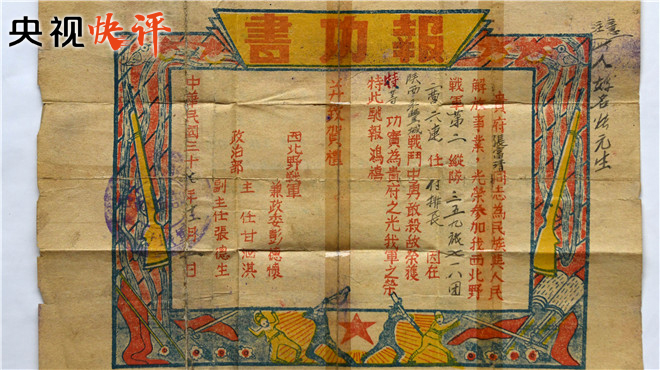 央视快评
報功書
貴府張富清同志為民族與人民
解放事業,光榮參加我西北野
戰軍第二縱隊三五九旅七一八團
二營六連任付排長。因在
陝西永豐城戰鬥中勇敢殺敵榮獲
特等功實為貴府之光我軍之榮
特此馳報鴻禧
並致賀禮
西北野戰軍
兼政委彭德懷
政治部
主任甘泗淇
副主任張德生
中華民國三十七年十二月日